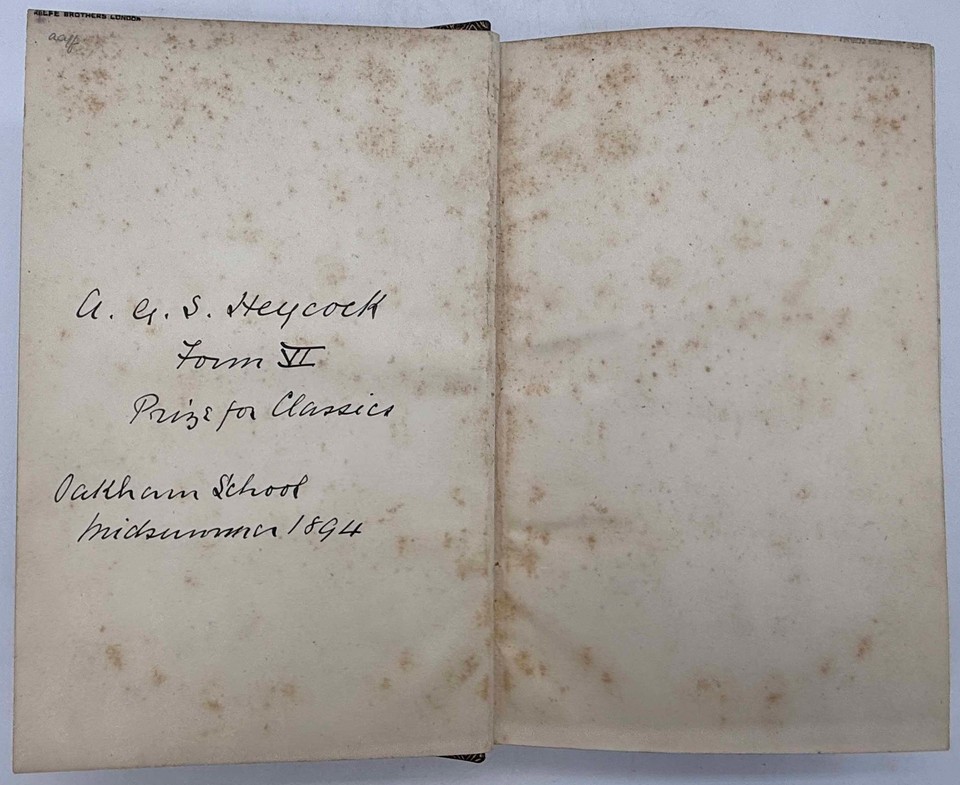 RELFE BROTHERS LONDON
A. G. S. Heycock
Form VI
Prize for Classics
Oakham School
Midsummer 1894